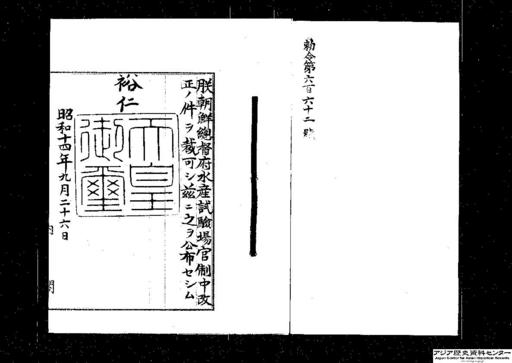 勅令第六百六十二號
朕朝鮮總督府水産試驗場官制中改
正ノ件ヲ裁可シ茲ニ之ヲ公布セシム
裕仁
天皇
御璽
昭和十四年九月二十六日
内閣
アジア歴史資料センター
Japan Center for Asian Historical Records